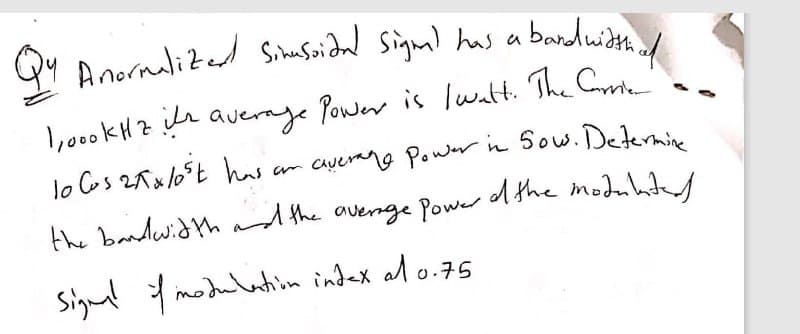 Q4 A normalized Sinusoidal signal has a bandwidth of
1,000 kHz its average Power is 1 watt. The Carrier
10 Cos 2π x 10⁵t has an average Power is 50w. Determine
the bandwidth and the average Power of the modulated
signal if modulation index at 0.75